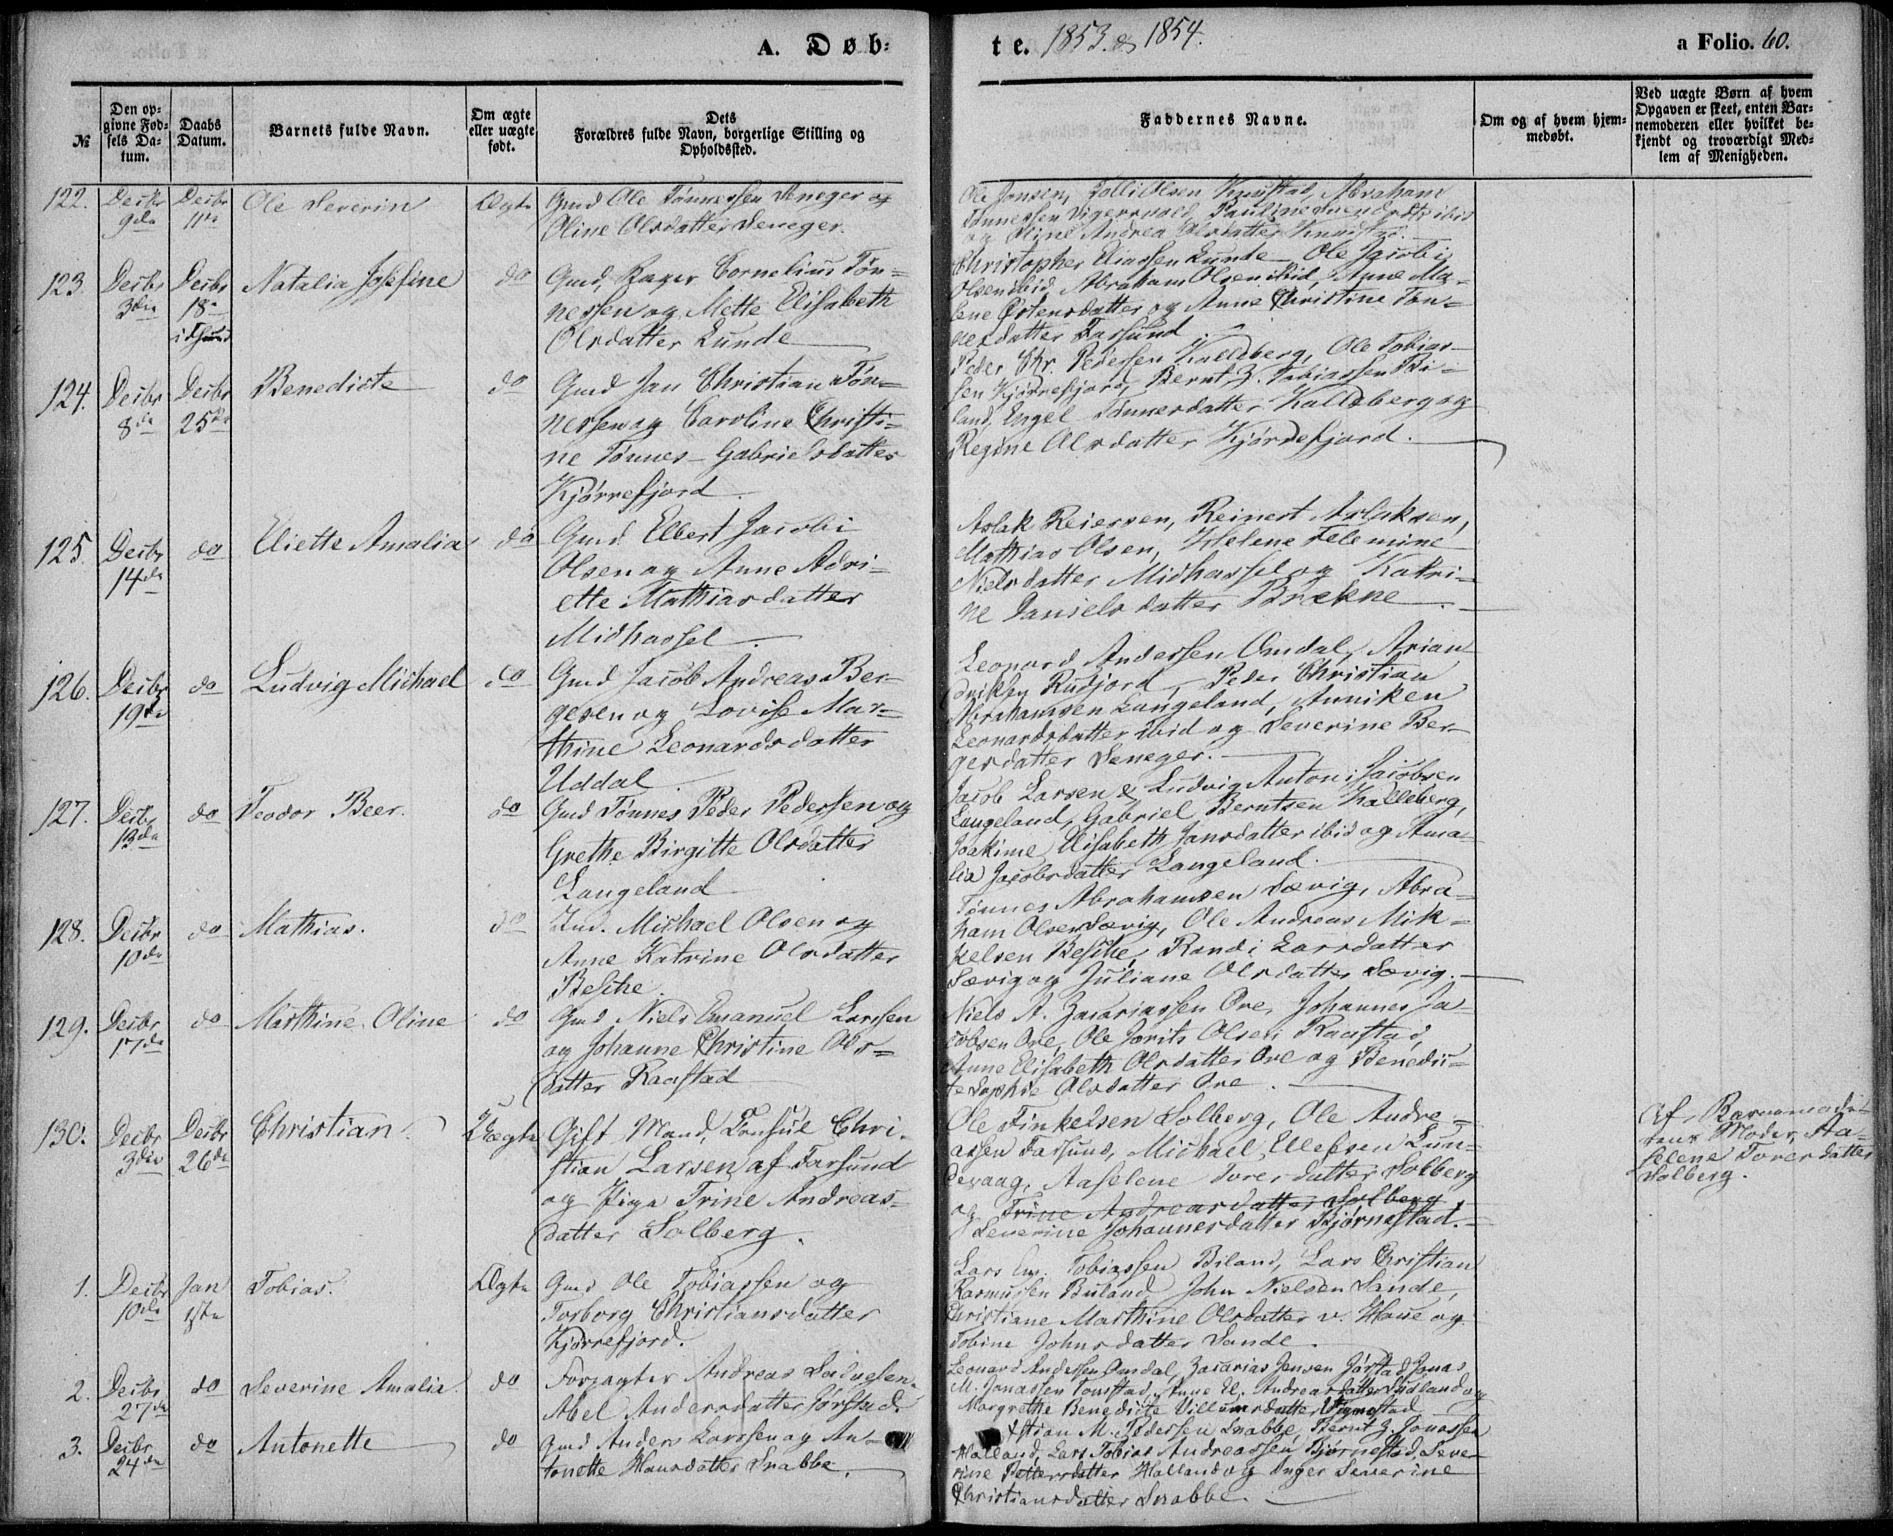 A. Døb-
te. 1853. & 1854.
a Folio. 60.
№
Den op-
givne Fød-
sels Da-
tum.
Daabs
Datum.
Barnets fulde Navn.
Om ægte
eller uægte
født.
Dets
Forældres fulde Navn, borgerlige Stilling og
Opholdssted.
Faddernes Navne.
Om og af hvem hjem-
medøbt.
Ved uægte Børn af hvem
Opgaven er skeet, enten Bar-
nemoderen eller hvilket be-
kjendt og troværdigt Med-
lem af Menigheden.
122. Decbr 9de Decbr 11te Ole Severin Ægte
Gmd Ole Tønnessen Seneger og
Oline Olsdatter Seneger.
Ole Jonsen, Olsen Knustad, Abraham
Tønnessen Vigersvold, Pauline ibid
og Oline Andrea Olsdatter Knustad.
123. Decbr 3die Decbr 18de Natalia Josefine do
Gmd Rager Cornelius Tøn-
nessen og Mette Elisabeth
Olsdatter Lunde
Christopher Eliassen Lunde, Ole Jacobi
Olsen ibid, Abraham Olsen ibid, Anne Ma-
lene Østensdatter og Anne Christine Tøn-
nesdatter Farsund.
124. Decbr 8de Decbr 25de Benedicte do
Gmd Jan Christian Tøn-
nessen og Caroline Christi-
ne Tønnes-Gabrielsdatter
Kjørrefjord.
Peder Chr. Pedersen Kalleberg, Ole Tobias-
sen Kjørrefjord, Bernt Z. Tobiassen Bi-
land, Engel Tønnesdatter Kalleberg og
Regine Olsdatter Kjørrefjord.
125. Decbr 14de do Eliette Amalia do
Gmd Elbert Jacobi
Olsen og Anne Adri-
ette Mathiasdatter
Midhassel.
Aslak Reiersen, Reinert Aslaksen,
Mathias Olsen, Helene Telemine
Nielsdatter Midhassel og Katri-
ne Danielsdatter Brekne.
126. Decbr 19de do Ludvig Michael do
Gmd Jacob Andreas Ber-
gesen og Lovise Mar-
thine Leonardsdatter
Uddal.
Leonard Andersen Omdal, Arian
Rudjord, Peder Christian
Abrahamsen Langeland, Anniken
Leonardsdatter ibid og Severine Ber-
gesdatter Seneger.
127. Decbr 13de do Teodor Beer. do
Gmd Tønnes Peder Pedersen og
Grethe Birgitte Olsdatter
Langeland
Jacob Larsen & Ludvig Antoni Jacobsen
Langeland, Gabriel Berntsen Kalleberg,
Joakime Elisabeth Jansdatter ibid og Ama-
lia Jacobsdatter Langeland.
128. Decbr 10de do Mathias. do
Ind. Michael Olsen og
Anne Katrine Olsdatter
Besche.
Tønnes Abrahamsen Sævig, Abra-
ham Olsen Sævig, Ole Andreas Mik-
kelsen Besche, Randi Larsdatter
Sævig og Juliane Olsdatter Sævig.
129. Decbr 17de do Marthine Oline do
Gmd Niels Emanuel Larsen
og Johanne Christine Ols-
datter Raastad
Niels A. Zacariassen Ore, Johannes Ja-
cobsen Ore, Ole Jorits Olsen Raastad,
Anne Elisabeth Olsdatter Ore og Benedic-
te Sophie Olsdatter Ore.
130. Decbr 3die Decbr 26de Christian. Uægte
Gift Mand, Konsul Chri-
stian Larsen af Farsund
og Pige Trine Andreas-
datter Solberg.
Ole Finkelsen Solberg, Ole Andre-
assen Farsund, Michael Ellefsen Lun-
devaag, Aaselene Toresdatter Solberg
og Trine Andreasdatter Solberg
Severine Johannesdatter Bjørnestad.
Af Barnemode-
rens Moder, Aa-
selene Toresdatter
Solberg.
1. Decbr 10de Jan 1ste Tobias. Ægte
Gmd Ole Tobiassen og
Torborg Christiansdatter
Kjørrefjord.
Lars Em. Tobiassen Biland, Lars Christian
Rasmussen Buland, John Nielsen Sande,
Christiane Marthine Olsdatter v. Haue og
Tobine Johnsdatter Sande.
2. Decbr 27de do Severine Amalia. do
Forpagter Andreas Salvesen,
Abel Andersdatter Jørstad.
Leonard Andersen Omdal, Zacarias Jensen Jørstad, Jonas
M. Jonassen Tomstad, Anne El. Andreasdatter og
Margrethe Benedicte Villumsdatter
3. Decbr 24de do Antonette do
Gmd Anders Larssen og An-
tonette Hansdatter Snabbe.
Stian M. Pedersen Snabbe, Bernt Z. Jonassen
Halland, Lars Tobias Andreassen Bjørnestad, Seve-
rine Pettersdatter Halland og Inger Severine
Christiansdatter Snabbe.